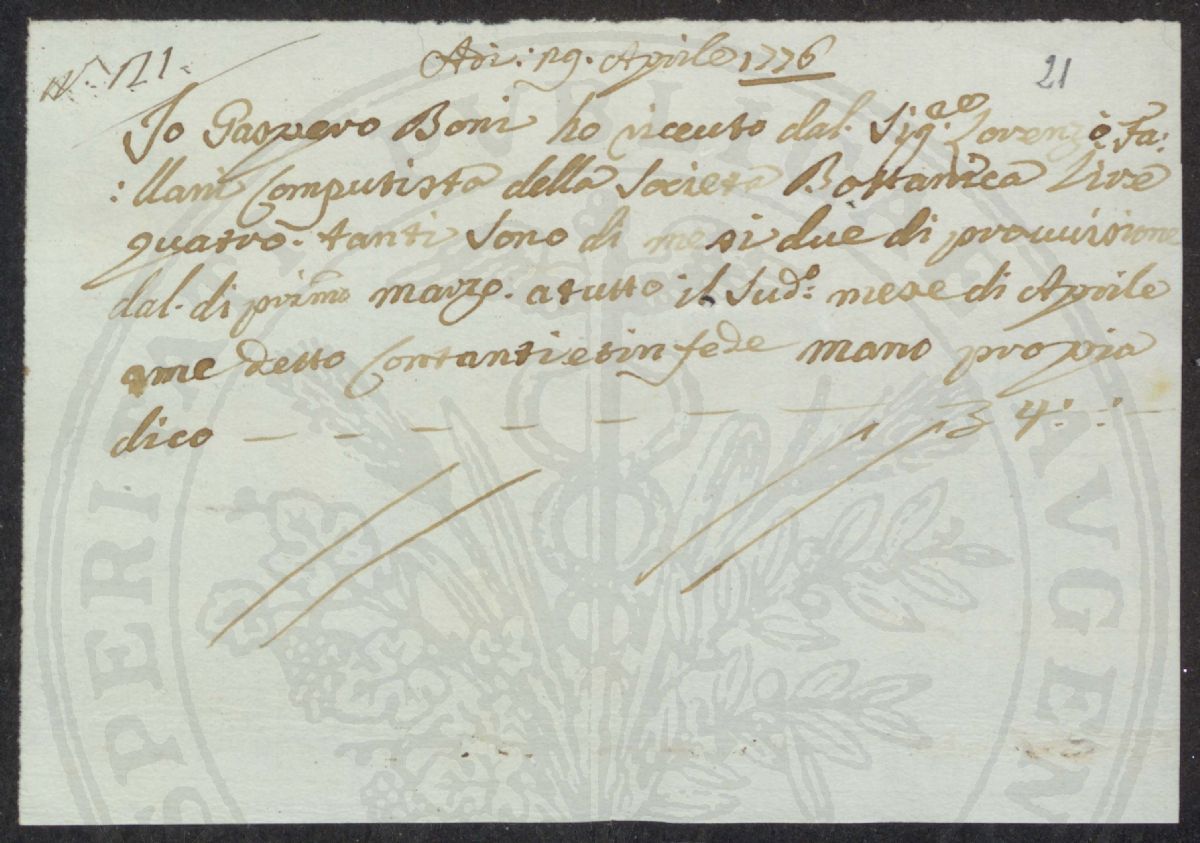 N.° 121.
Adi: 29. Aprile 1776
21
Io Gaspero Boni ho riceuto dal. Sig.re Lorenzo Fa:
:llani Computista della Società Bottanica Lire
quatro. tanti sono di mesi due di prouuisione
dal. di primo marzo. a tutto il Sud.o mese di Aprile
ame detto Contanti et in fede mano propia
dico — — — — — — 4: :
PUBLICAE
PROSPERITATI AUGENDAE